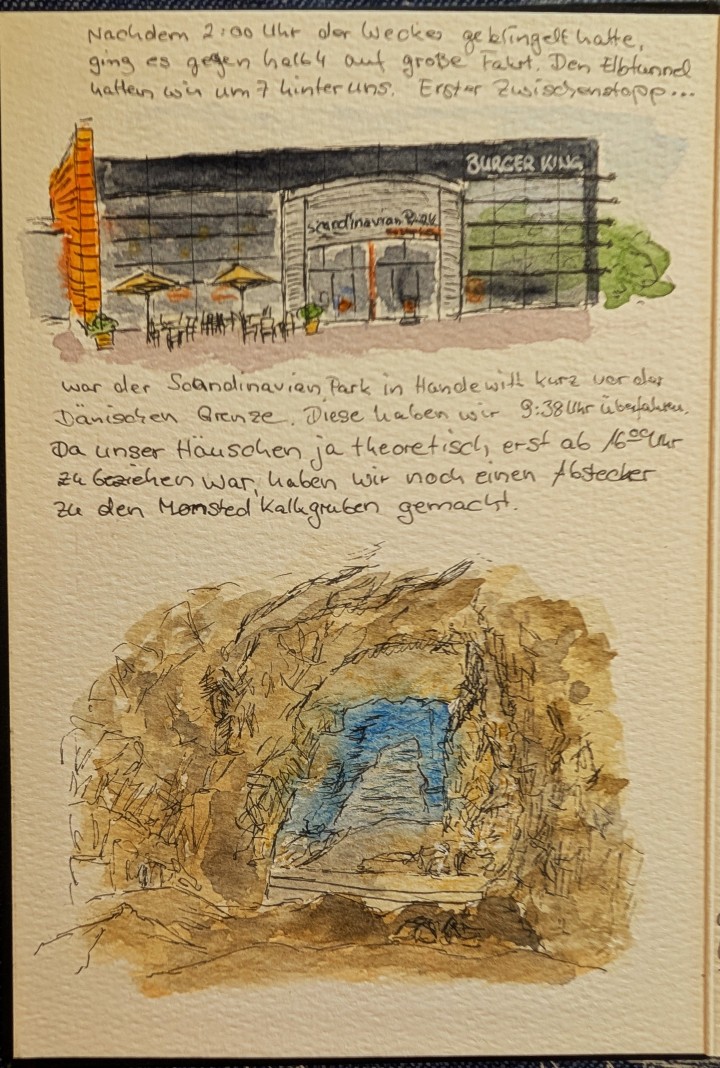 Nachdem 2:00 Uhr der Wecker geklingelt hatte,
ging es gegen halb 4 auf große Fahrt. Den Elbtunnel
hatten wir um 7 hinter uns. Erster Zwischenstopp...
BURGER KING
Scandinavian Park
war der Scandinavian Park in Handewitt kurz vor der
Dänischen Grenze. Diese haben wir 9:38 Uhr überfahren.
Da unser Häuschen ja theoretisch erst ab 16⁰⁰ Uhr
zu beziehen war, haben wir noch einen Abstecker
zu den Mønsted Kalkgruben gemacht.